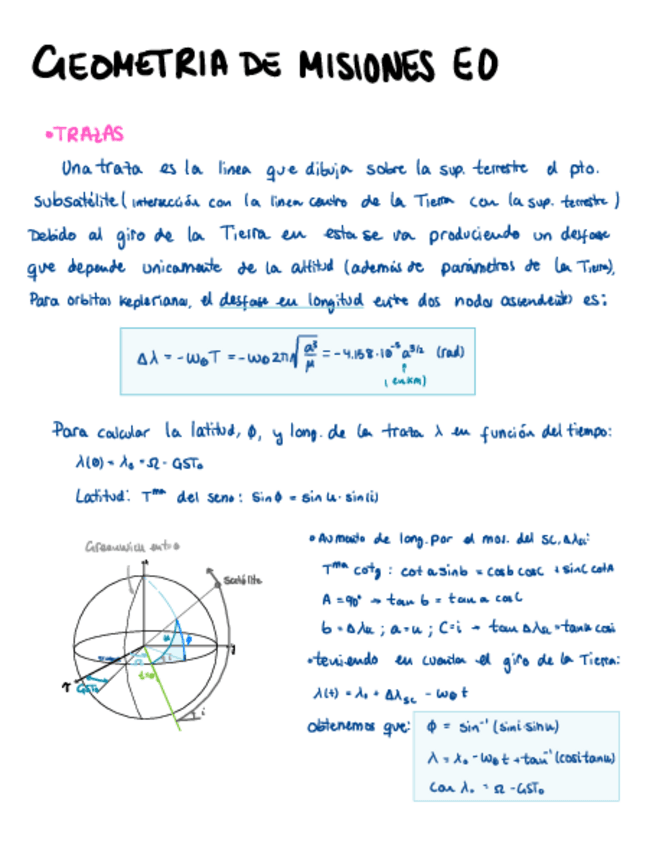 GEOMETRIA DE MISIONES EO
•TRAZAS
Una traza es la linea que dibuja sobre la sup. terrestre el pto.
subsatélite (intersección con la linea centro de la Tierra con la sup. terrestre)
Debido al giro de la Tierra en esta se va produciendo un desfase
que depende unicamente de la altitud (además de parámetros de la Tierra),
Para orbitas keplerianas, el desfase en longitud entre dos nodos ascendentes es:
Δλ = -ω⊕T = -ω⊕2π√(a³/μ) = -4.158·10⁻⁵ a^(3/2) (rad)
(en km)
Para calcular la latitud, ϕ, y long. de la traza λ en función del tiempo:
λ(0) = λ₀ = Ω - GST₀
Latitud: Tᵐᵃ del seno: sinϕ = sin u · sin(i)
Greenwich ent=0
Satélite
u
ϕ
y
Ω
i
t=0
GST₀
i
•Aumento de long. por el mov. del SC, Δλsc:
Tᵐᵃ cotg: cot a sinb = cosb cosC + sinC cotA
A = 90° → tan b = tan a cos C
b = Δλu ; a = u ; C = i → tan Δλu = tanu cosi
•teniendo en cuenta el giro de la Tierra:
λ(t) = λ₀ + Δλsc - ω⊕ t
obtenemos que: ϕ = sin⁻¹ (sini·sinu)
λ = λ₀ - ω⊕ t + tan⁻¹ (cosi tanu)
Con λ₀ = Ω - GST₀